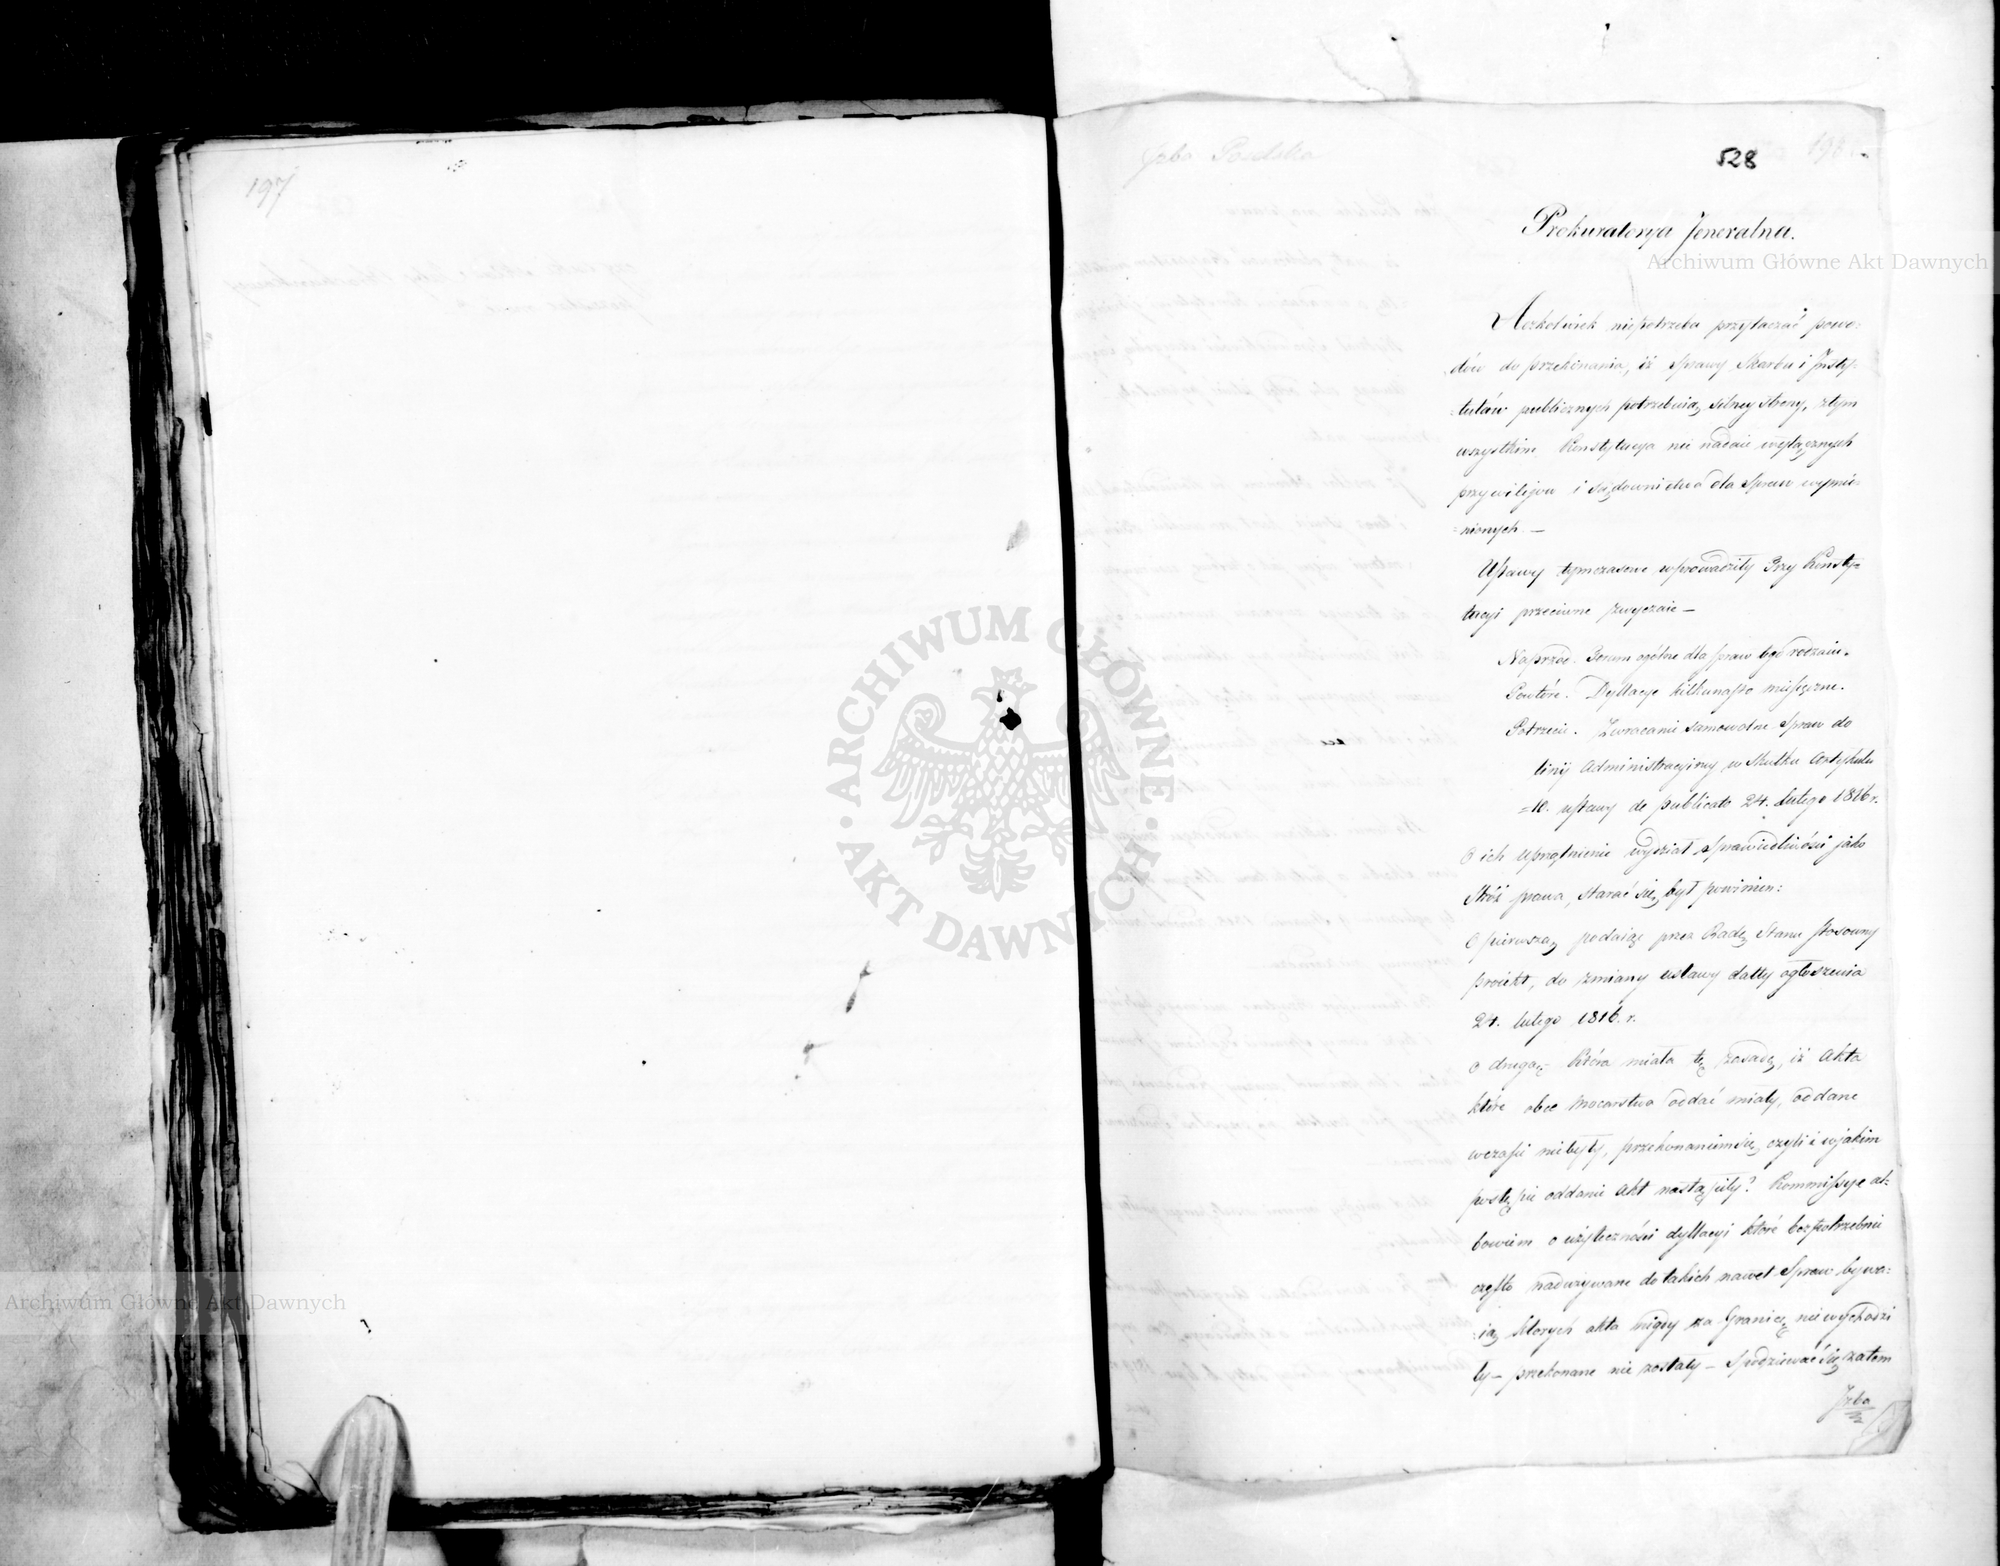 197
Izba Poselska
528
198
Prokuratorya Jeneralna.
Aczkolwiek niepotrzeba przytaczać powo-
dów do przekonania, iż sprawy Skarbu i Insty-
-tutów publicznych potrzebuią silney strony, ztym
wszystkim Konstytucya nie nadaie wyłącznych
przywilejow i sądownictwa dla spraw wymie-
-nionych —
Ustawy tymczasowe wprowadziły Trzy Konsty-
tucyi przeciwne zwyczaie —
Naprzód. Forum ogólne dla spraw tego rodzaiu.
Powtóre. Dyllacye kilkunasto miesięczne.
Potrzecie. Zwracanie samowolne Spraw do
linij Administracyiney w skutku Artykułu
=10. ustawy de publicato 24. Lutego 1816 r.
O ich uprzątnienie wydział sprawiedliwości jako
Stróż prawa, starać się był powinien:
O pierwszą podaiąc przez Radę Stanu stosowny
proiekt, do zmiany ustawy datty ogłoszenia
24. lutego 1816. r.
O drugą — Która miała tę zasadę, iż Akta
które obce Mocarstwa oddać miały, oddane
wczasie niebyły, przekonaniem się, czyli i wjakim
postępie oddanie Akt nastąpiły? Kommissye al-
bowiem o użyteczności dyllacyi które bezpotrzebnie
często nadużywane do takich nawet Spraw bywa-
-ią których akta nigdy za Granicę niewychodzi
ły — przekonane nie zostały — Spodziewać się zatem
Izba
Archiwum Główne Akt Dawnych
ARCHIWUM GŁÓWNE AKT DAWNYCH
Archiwum Główne Akt Dawnych